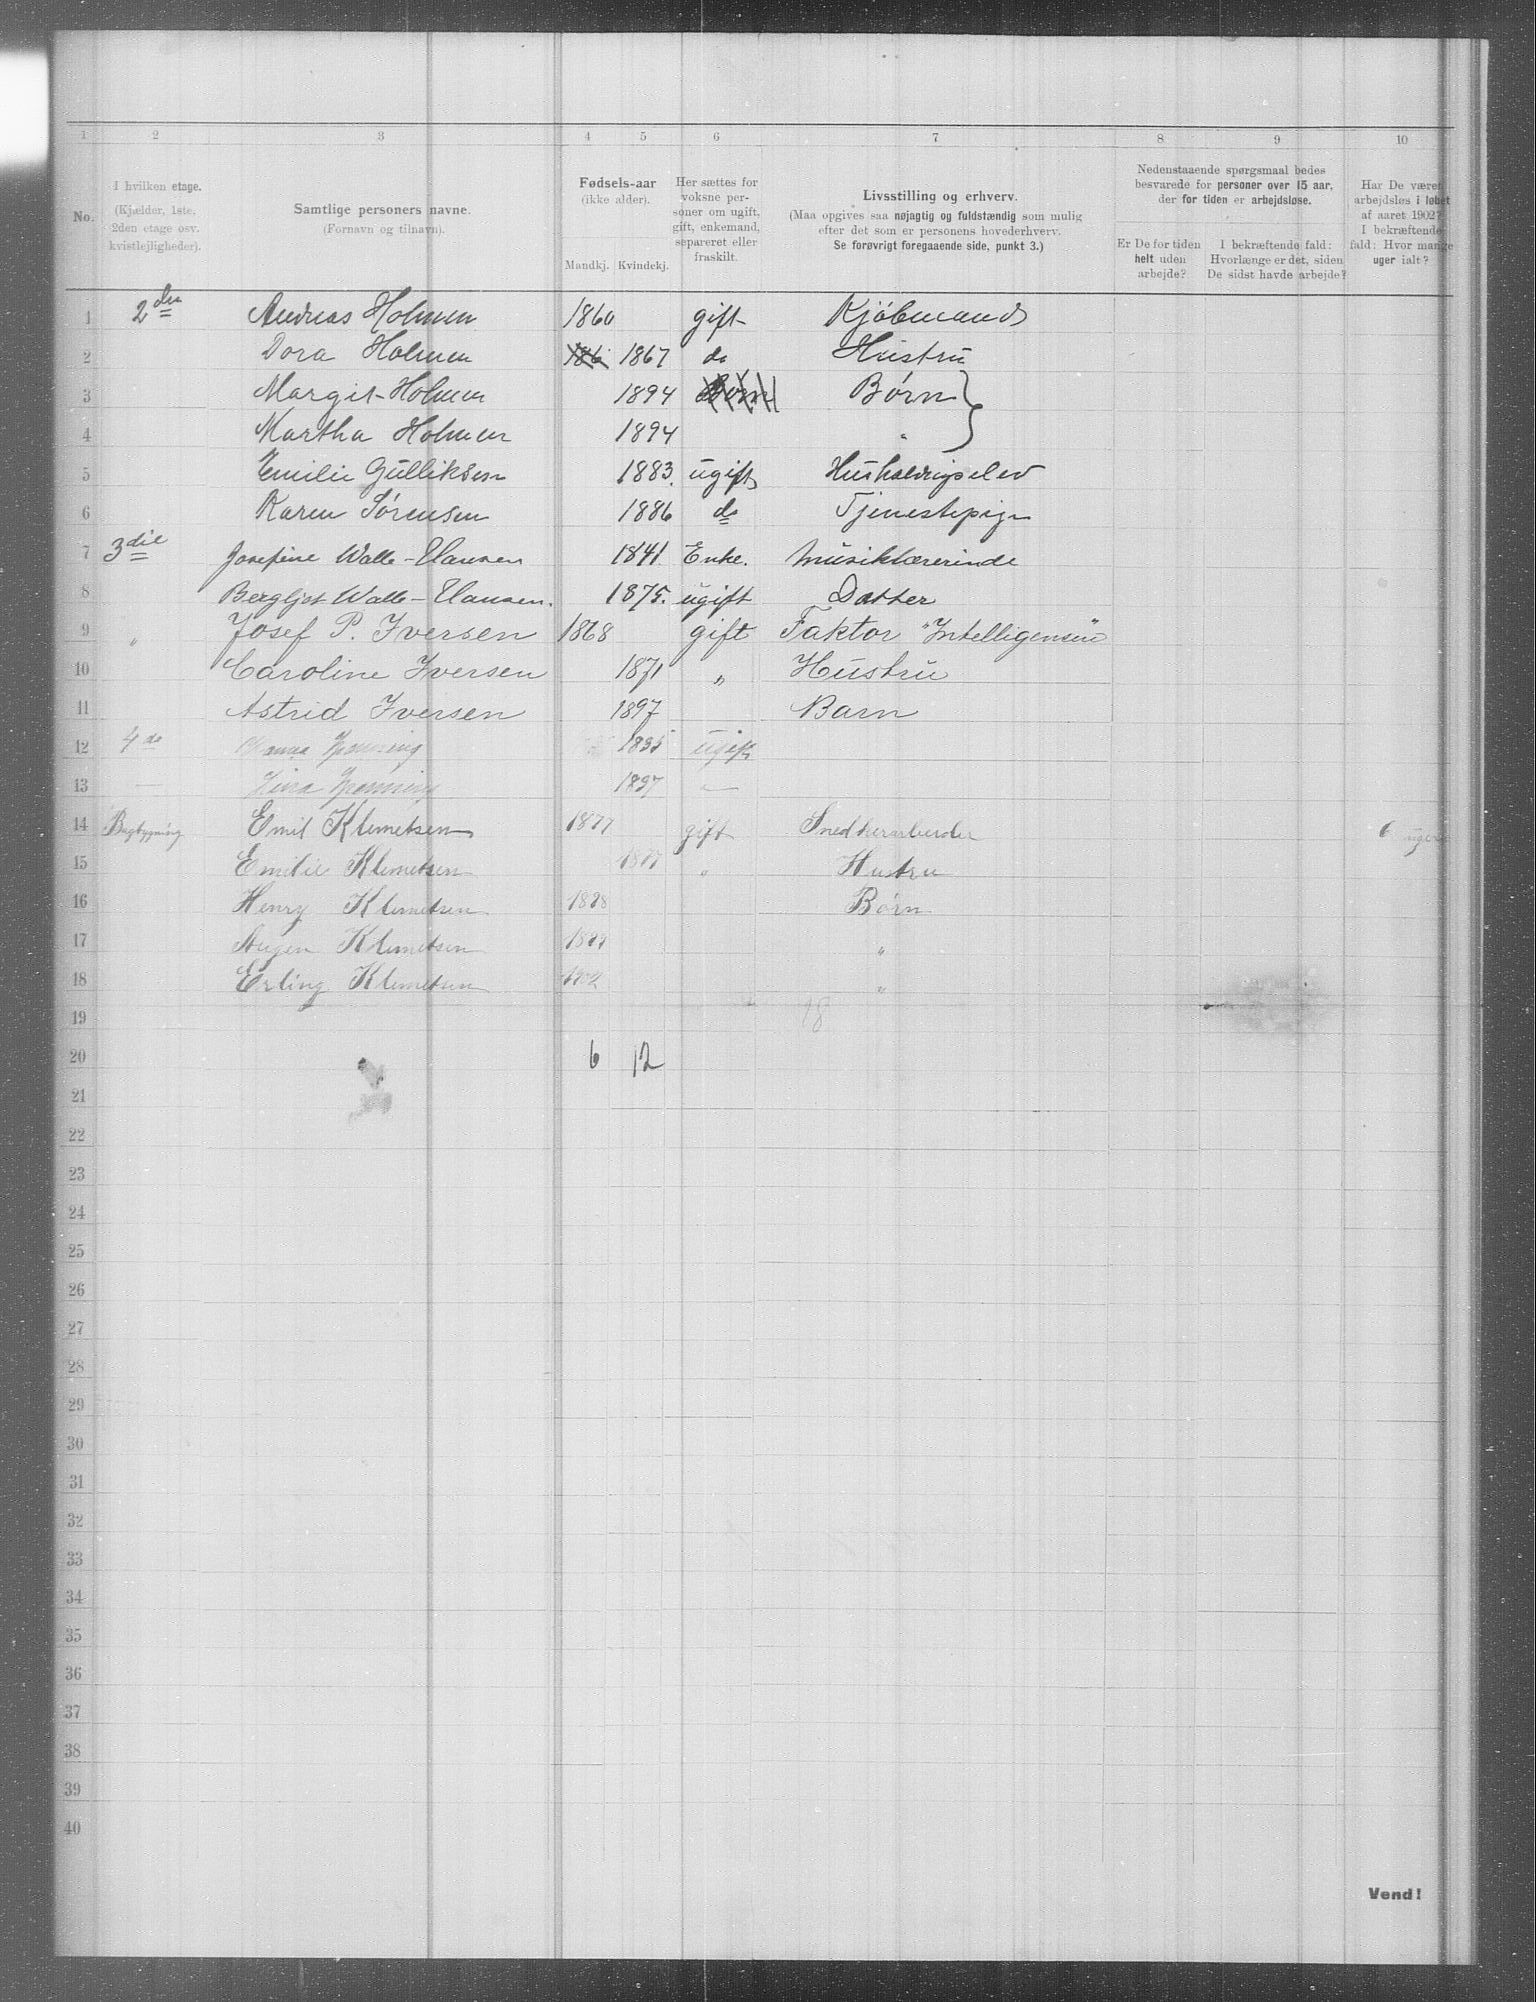 1 2 3 4 5 6 7 8 9 10
No.
I hvilken etage.
(Kjælder, 1ste.
2den etage osv.
kvistlejligheder).
Samtlige personers navne.
(Fornavn og tilnavn).
Fødsels-aar
(ikke alder).
Mandkj. Kvindekj.
Her sættes for
voksne per-
soner om ugift,
gift, enkemand,
separeret eller
fraskilt.
Livsstilling og erhverv.
(Maa opgives saa nøjagtig og fuldstændig som mulig
efter det som er personens hovederhverv.
Se forøvrigt foregaaende side, punkt 3.)
Nedenstaaende spørgsmaal bedes
besvarede for personer over 15 aar,
der for tiden er arbejdsløse.
Er De for tiden
helt uden
arbejde?
I bekræftende fald:
Hvorlænge er det, siden
De sidst havde arbejde?
Har De været
arbejdsløs i løbet
af aaret 1902?
I bekræftende
fald: Hvor mange
uger ialt?
1 2den Andreas Holmen 1860 gift Kjøbmand
2 Dora Holmen 186 1867 do Hustru
3 Margit Holmen 1894 Børn Børn }
4 Martha Holmen 1894 "
5 Emilie Gulliksen 1883. ugift Husholdningselev
6 Karen Sørensen 1886 do Tjenestepige
7 3die Josefine Walle-Hansen 1841. Enke. Musiklærerinde
8 Bergljot Walle-Hansen. 1875. ugift Datter
9 " Josef P. Iversen 1868 gift Faktor "Intelligensen"
10 Caroline Iversen 1871 " Hustru
11 Astrid Iversen 1897 Barn
12 4de ugift
13
14 Bagbygning Emil Klemetsen 1877 gift Snedkerarbeider 6 uger
15 Emilie Klemetsen 1877 " Hustru
16 Henry Klemetsen Børn
17 Klemetsen "
18 Erling Klemetsen 1902 "
19 18
20 6 12
21
22
23
24
25
26
27
28
29
30
31
32
33
34
35
36
37
38
39
40
Vend!